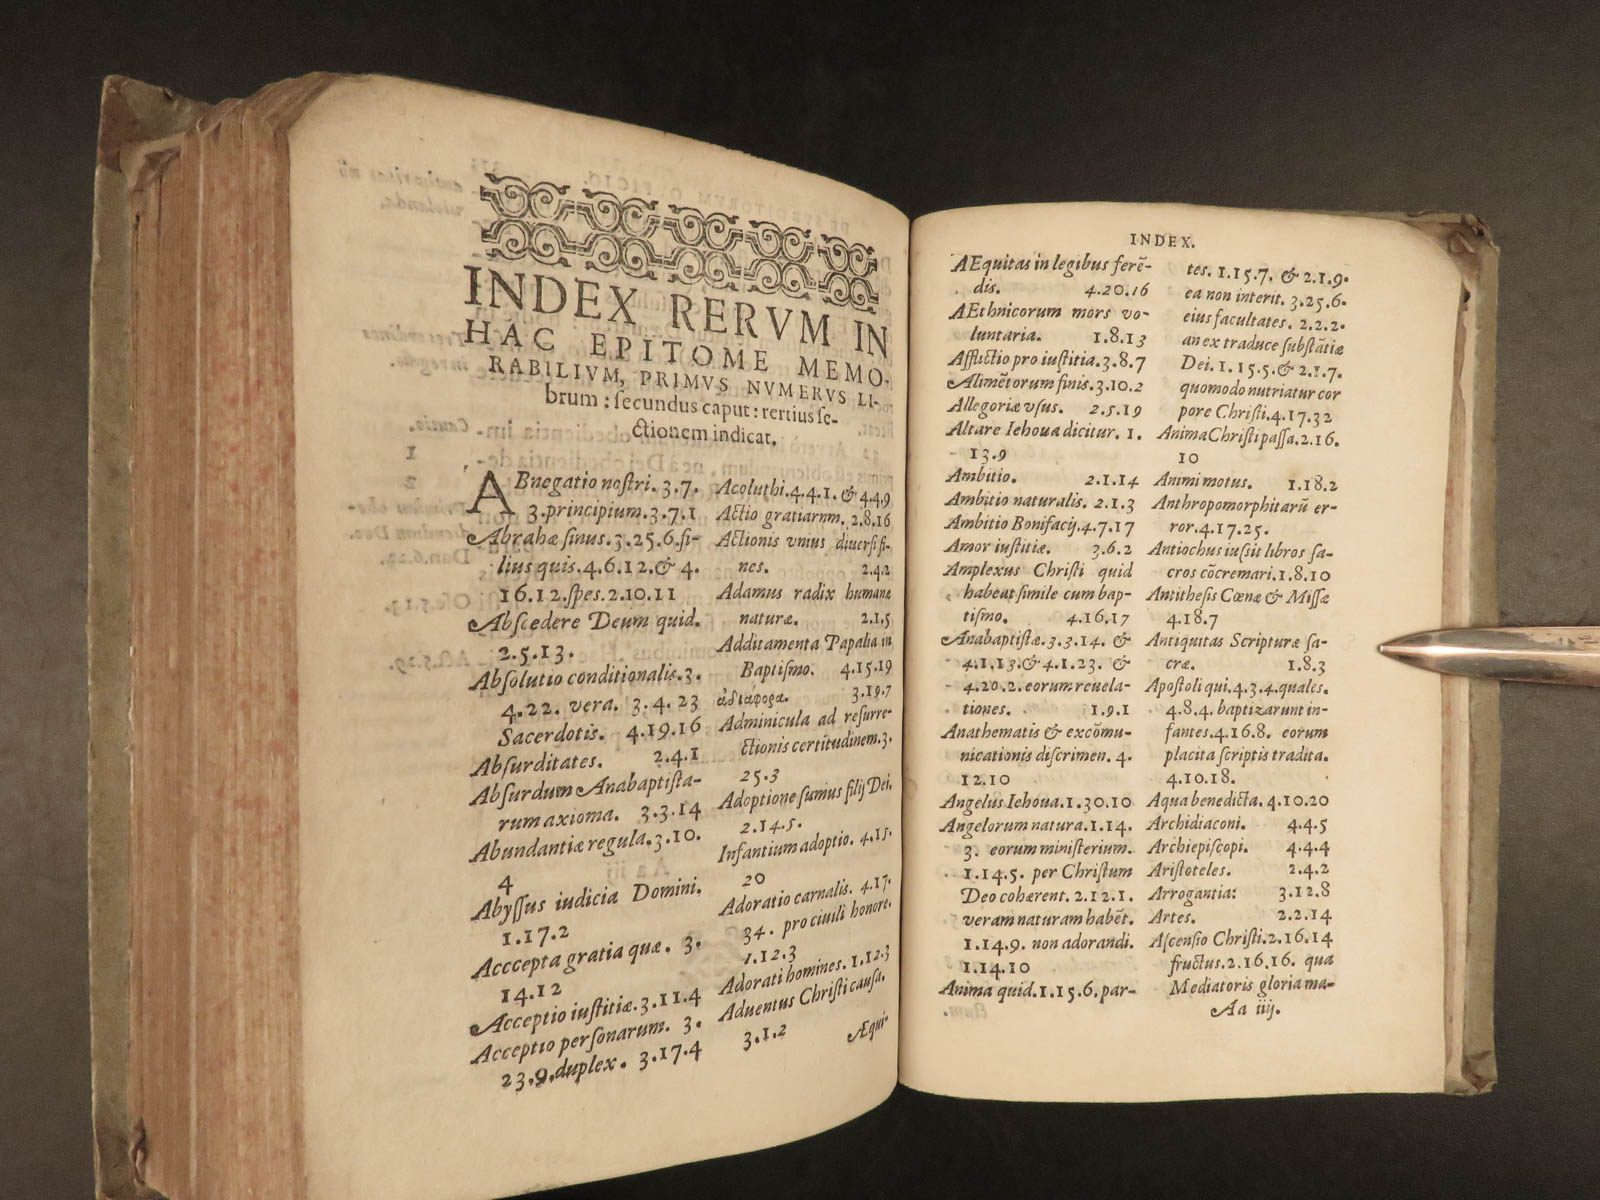 INDEX RERVM IN
HAC EPITOME MEMO-
RABILIVM, PRIMVS NVMERVS LI-
brum : ſecundus caput : tertius ſe-
ctionem indicat.
ABnegatio noſtri. 3.7.
3. principium. 3.7.1
Abrahæ ſinus. 3.25.6. fi-
lius quis. 4.6.12. & 4.
16.12. ſpes. 2.10.11
Abſcedere Deum quid.
2.5.13.
Abſolutio conditionalis. 3.
4.22. vera. 3.4.23
Sacerdotis. 4.19.16
Abſurditates. 2.4.1
Abſurdum Anabaptiſta-
rum axioma. 3.3.14
Abundantiæ regula. 3.10.
4
Abyſſus iudicia Domini.
1.17.2
Acccepta gratia quæ. 3.
14.12
Acceptio iuſtitiæ. 3.11.4
Acceptio perſonarum. 3.
23.9. duplex. 3.17.4
Acoluthi. 4.4.1. & 4.4.9
Actio gratiarum. 2.8.16
Actionis vnius diuerſi fi-
nes. 2.4.2
Adamus radix humanæ
naturæ. 2.1.5
Additamenta Papalia in
Baptiſmo. 4.15.19
ἀδιάφορα. 3.19.7
Adminicula ad reſurre-
ctionis certitudinem. 3.
25.3
Adoptione ſumus filij Dei.
2.14.5.
Infantium adoptio. 4.15.
20
Adoratio carnalis. 4.17.
34. pro ciuili honore.
1.12.3
Adorati homines. 1.12.3
Aduentus Chriſti cauſa.
3.1.2
Æqui-
INDEX.
AEquitas in legibus ferē-
dis. 4.20.16
AEthnicorum mors vo-
luntaria. 1.8.13
Afflictio pro iuſtitia. 3.8.7
Alimētorum finis. 3.10.2
Allegoriæ vſus. 2.5.19
Altare Iehoua dicitur. 1.
13.9
Ambitio. 2.1.14
Ambitio naturalis. 2.1.3
Ambitio Bonifacij. 4.7.17
Amor iuſtitiæ. 3.6.2
Amplexus Chriſti quid
habeat ſimile cum bap-
tiſmo. 4.16.17
Anabaptiſtæ. 3.3.14. &
4.1.13. & 4.1.23. &
4.20.2. eorum reuela-
tiones. 1.9.1
Anathematis & excōmu-
nicationis diſcrimen. 4.
12.10
Angelus Iehoua. 1.30.10
Angelorum natura. 1.14.
3. eorum miniſterium.
1.14.5. per Chriſtum
Deo cohærent. 2.12.1.
veram naturam habēt.
1.14.9. non adorandi.
1.14.10
Anima quid. 1.15.6. par-
tes. 1.15.7. & 2.1.9.
ea non interit. 3.25.6.
eius facultates. 2.2.2.
an ex traduce ſubſtātiæ
Dei. 1.15.5. & 2.1.7.
quomodo nutriatur cor
pore Chriſti. 4.17.32
Anima Chriſti paſſa. 2.16.
10
Animi motus. 1.18.2
Anthropomorphitarū er-
ror. 4.17.25.
Antiochus iuſsit libros ſa-
cros cōcremari. 1.8.10
Antitheſis Cœnæ & Miſſæ
4.18.7
Antiquitas Scripturæ ſa-
cræ. 1.8.3
Apoſtoli qui. 4.3.4. quales.
4.8.4. baptizarunt in-
fantes. 4.16.8. eorum
placita ſcriptis tradita.
4.10.18.
Aqua benedicta. 4.10.20
Archidiaconi. 4.4.5
Archiepiſcopi. 4.4.4
Ariſtoteles. 2.4.2
Arrogantia: 3.12.8
Artes. 2.2.14
Aſcenſio Chriſti. 2.16.14
fructus. 2.16.16. qua
Mediatoris gloria ma-
Aa iiij.